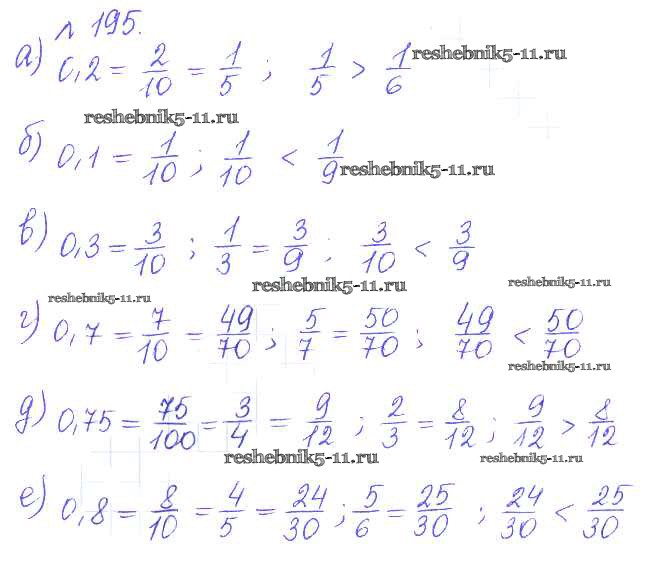 № 195.
а) 0,2 = 2/10 = 1/5 ; 1/5 > 1/6 reshebnik5-11.ru
reshebnik5-11.ru
б) 0,1 = 1/10 ; 1/10 < 1/9 reshebnik5-11.ru
в) 0,3 = 3/10 ; 1/3 = 3/9 ; 3/10 < 3/9
reshebnik5-11.ru reshebnik5-11.ru
reshebnik5-11.ru
г) 0,7 = 7/10 = 49/70 ; 5/7 = 50/70 ; 49/70 < 50/70
reshebnik5-11.ru
д) 0,75 = 75/100 = 3/4 = 9/12 ; 2/3 = 8/12 ; 9/12 > 8/12
reshebnik5-11.ru reshebnik5-11.ru
е) 0,8 = 8/10 = 4/5 = 24/30 ; 5/6 = 25/30 ; 24/30 < 25/30